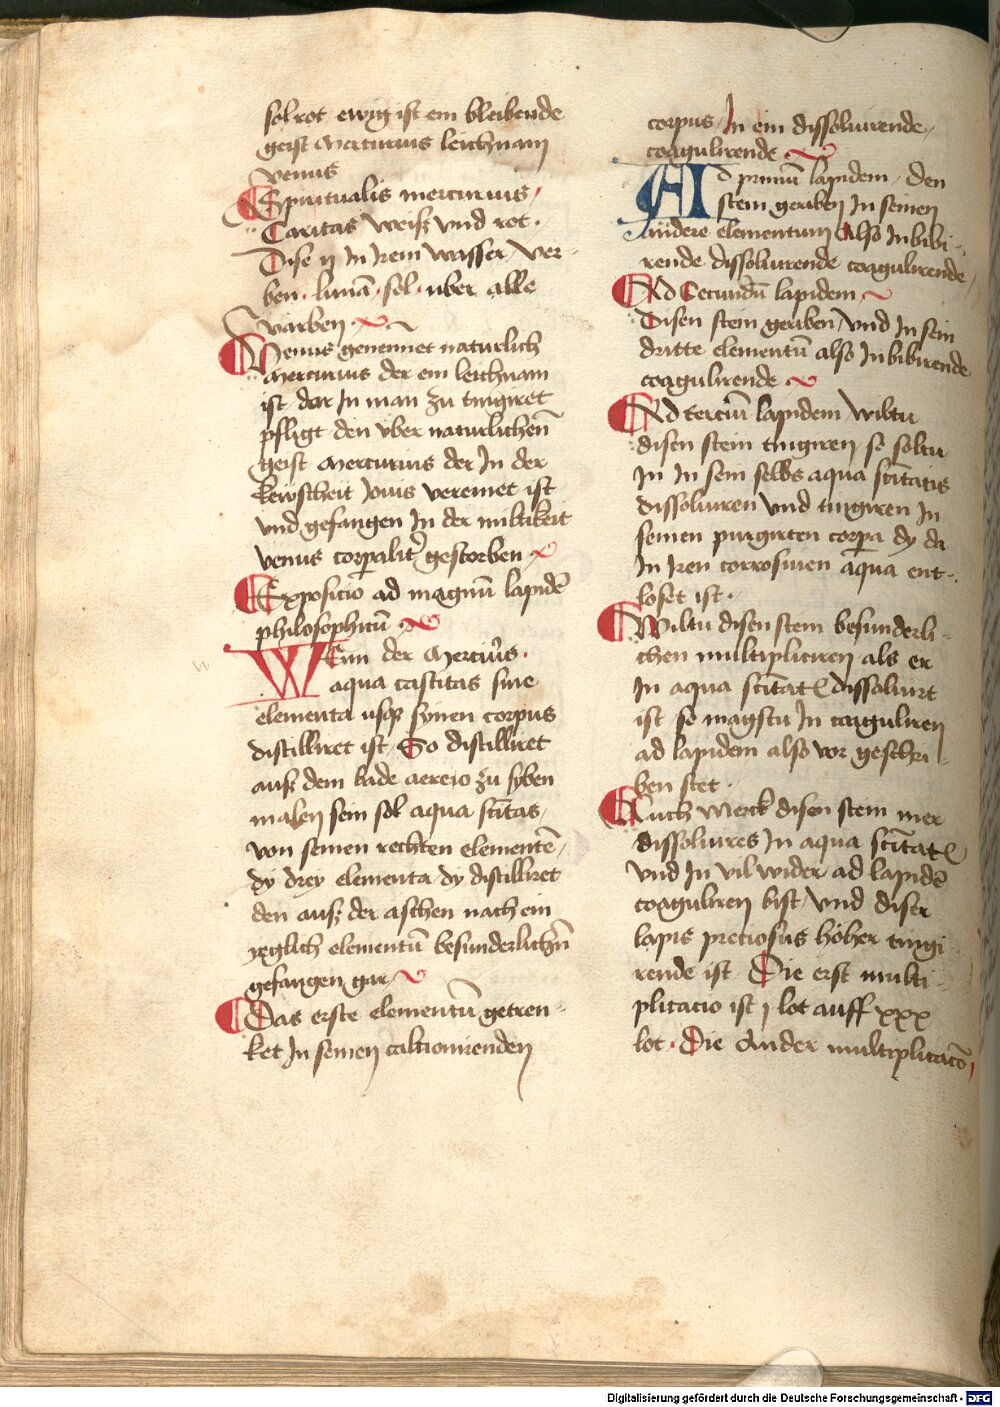 sol rot ewig ist ein bleibende
geist Mercurius leichnam
venus
Spiritualis mercurius
Caritas weiß vnd rot ·
Dise ij In Irem wasser ver-
ben · lunā · sol · uber alle
varben
Venus genennet naturlich
Mercurius der ein leichnam
ist dar In man zu tingiret
pfligt den vber naturlichen
geist Mercurius der In der
keuscheit Jouis vereinet ist
vnd gefangen In der miltikeit
venus corpalit gestorben
Expositio ad magnū lapidē
philosophicū
Wenn der Mercius ·
aqua castitas sine
elementa usqꝫ synen corpus
distilliret ist So distilliret
auß dem bade aereio zu syben
malen sein sol aqua sc̄itas
von seinen rechten elementē
dy drey elementa dy distilliret
den auß der aschen nach ein
yeglich elementū besunderlichn̄
gefangen gar
Das erste elementū getren-
ket In seinen calcionirenden
corpus In ein dissoluirende
coagulirende
Ad primū lapidem den
stein geriben In seinen
andere elementum Also Inbibi-
rende dissoluirende coagulirende
Ad Secundū lapidem
Disen stein geriben vnd In sein
dritte elementū also Inbibirende
coagulirende
Ad terciū lapidem wiltu
disen stein tingiren so soltu
In In sein selbs aqua sc̄itatis
dissoluiren vnd tingiren In
seinen purgirten corpa dy da
In Iren corrosiuen aqua ent-
loset ist ·
Wiltu disen stein besunderli-
chen multipliciren als er
In aqua sc̄itat dissoluirt
ist so magstu In coaguliren
ad lapidem also vor geschri-
ben stet ·
Auch Merck disen stein mer
dissoluires In aqua sc̄itat
vnd In vil wider ad lapidē
coaguliren bist vnd diser
lapis preciosus hoher tingi-
rende ist Die erst multi-
plicacio ist j lot auff xxx
lot · Die Ander multiplicacō
Digitalisierung gefördert durch die Deutsche Forschungsgemeinschaft - DFG